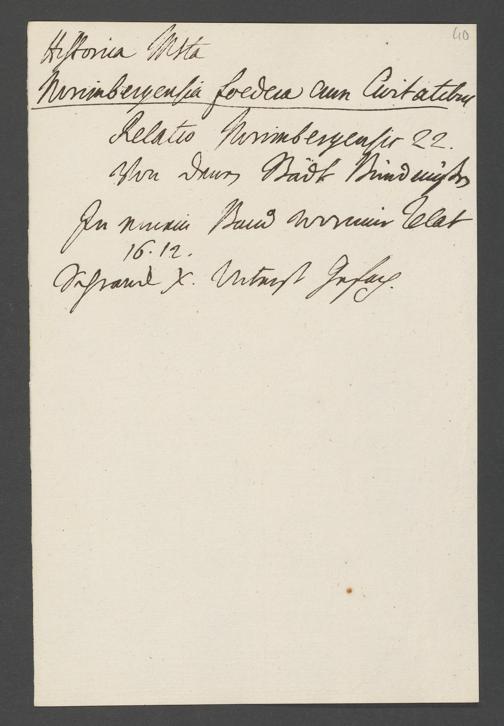 40
Historica Msta
Norimbergensia foedera cum Civitatibus
Relatio Norimbergensis 22.
Von denen Städt Bündnüssen
In einem Band worinnen
16.12.
Schranck X.